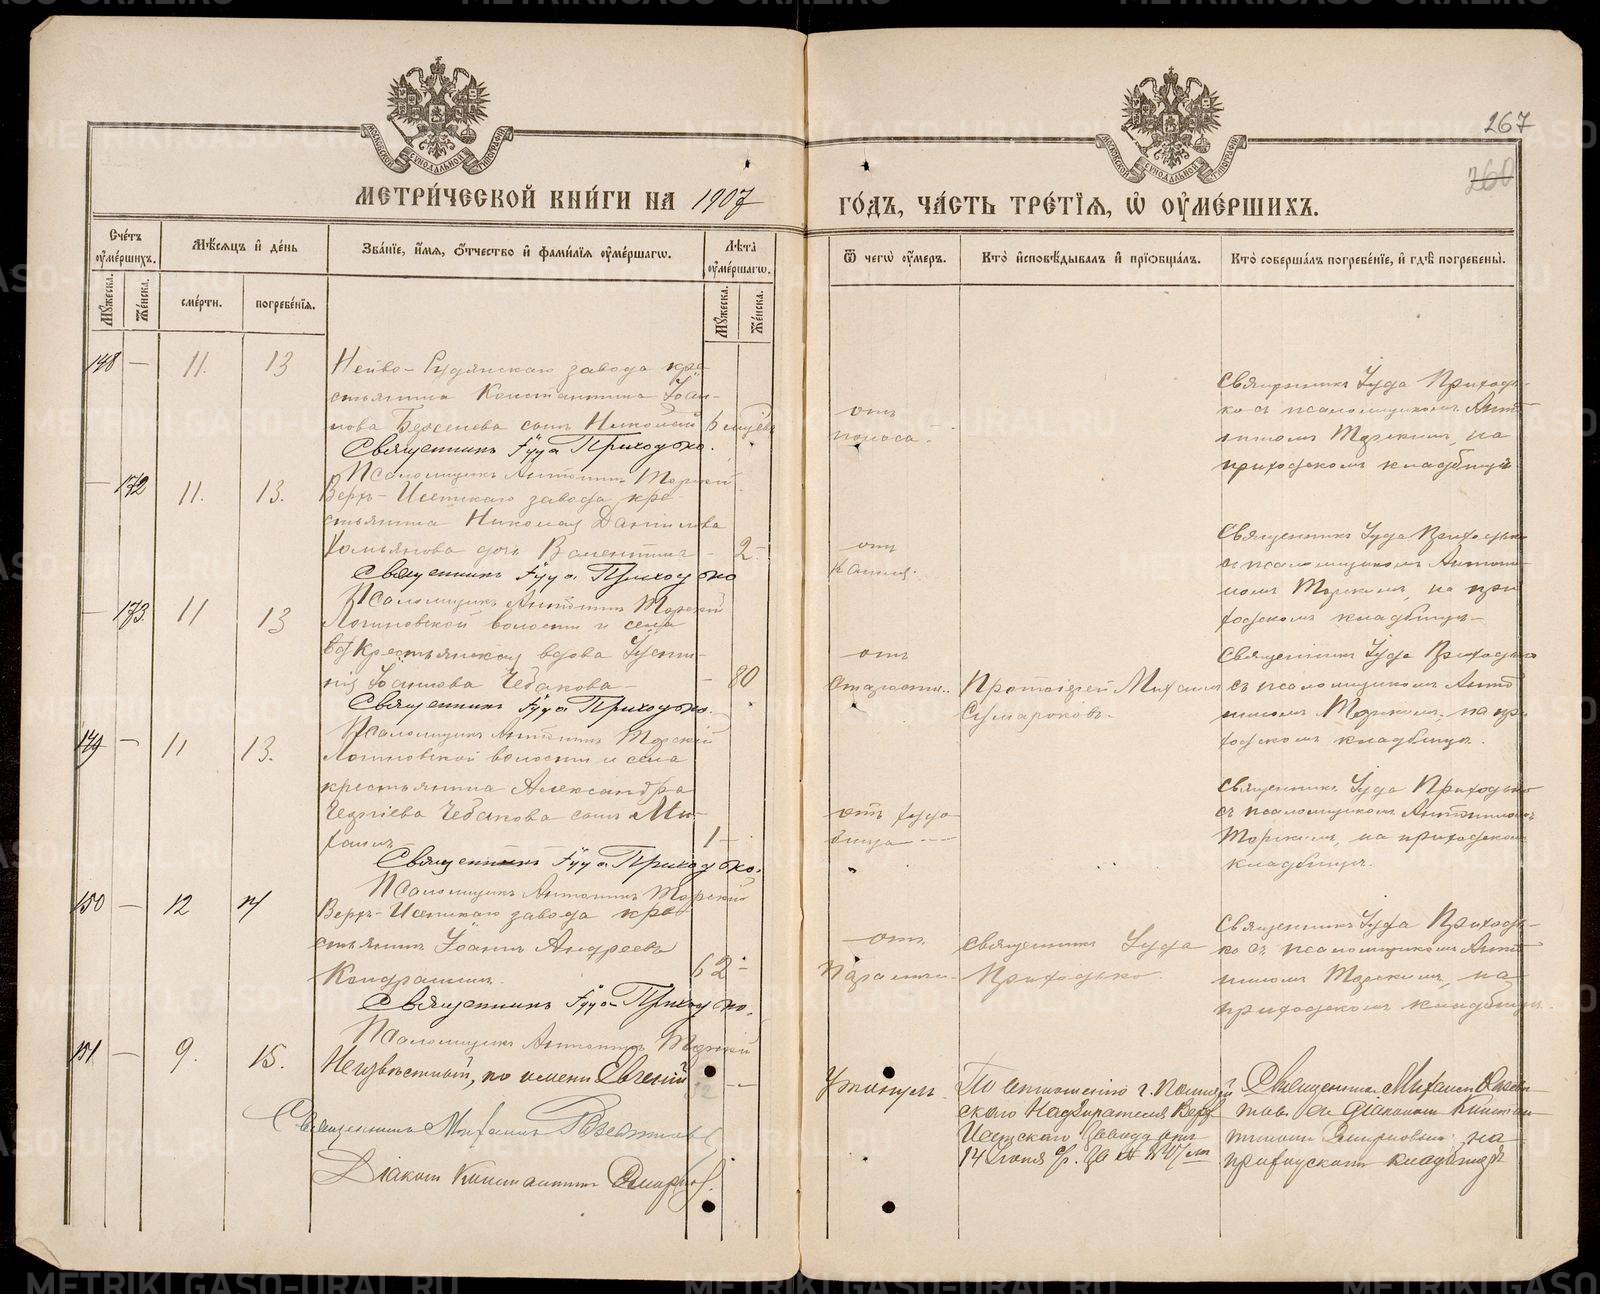 267
260
МЕТРИ́ЧЕСКОЙ КНИ́ГИ НА 1907
ГО́ДЪ, ЧА́СТЬ ТРЕ́ТІѦ, Ѡ҆ ОУ҆МЕ́РШИХЪ.
Сче́тъ оу҆ме́ршихъ.
Мѣ́сѧцъ и҆ де́нь
Зва́нїе, и҆́мѧ, ѻ҆́тчество и҆ фами́лїѧ оу҆ме́ршагѡ.
Лѣ́та оу҆ме́ршагѡ.
Ѿ чегѡ̀ оу҆́меръ.
Кто̀ и҆сповѣ́дывалъ и҆ прїѻбща́лъ.
Кто̀ соверша́лъ погребе́нїе, и҆ гдѣ̀ погребены̀.
Мꙋ́жеска.
Же́нска.
сме́рти.
погребе́нїѧ.
Мꙋ́жеска.
Же́нска.
148 — 11. 13
Нейво-Рудянскаго завода кре-
стьянина Константина Іоан-
нова сынъ Николай 6
Священникъ Іуда Приходько.
Псаломщикъ Антонинъ
отъ
поноса.
Священникъ Іуда Приходь-
ко съ псаломщикомъ Анто-
на
приходскомъ кладбищѣ
— 172 11. 13.
Верхъ-Исетскаго завода кре-
стьянина Николая Данилова
дочь Валентина — 2 —
Священникъ Іуда Приходько
Псаломщикъ Антонинъ
отъ
кашля.
Священникъ Іуда Приходько
съ псаломщикомъ Антони-
номъ на при
ходскомъ кладбищѣ
— 173 11 13
Логиновской волости и села
крестьянская вдова
Іоаннова Чебакова — 80
Священникъ Іуда Приходько.
Псаломщикъ Антонинъ
отъ
старости.
Протоіерей Михаилъ
Сумароковъ.
Священникъ Іуда Приходько
съ псаломщикомъ Анто
ниномъ на при
ходскомъ кладбищѣ.
149 — 11 13.
Логиновской волости и села
крестьянина Александра
Георгіева Чебакова сынъ Ми-
хаилъ 1 —
Священникъ Іуда Приходько.
Псаломщикъ Антонинъ
отъ
Священникъ Іуда Приходько
съ псаломщикомъ Антониномъ
на приходскомъ
кладбищѣ.
150 — 12 14
Верхъ-Исетскаго завода кре-
стьянинъ Іоаннъ Андреевъ
Кондрашинъ 62 —
Священникъ Іуда Приходько.
Псаломщикъ Антонинъ
отъ
паралича.
священникъ Іуда
Приходько.
Священникъ Іуда Приходь-
ко съ псаломщикомъ Анто
ниномъ на
приходскомъ кладбищѣ.
151 — 9. 15.
Неизвѣстный, по имени Евгеній
Священникъ Михаилъ
Діаконъ Константинъ Смирновъ.
Утонулъ.
По отношенію г. Полицей
скаго Надзирателя Верх
Исетскаго завода отъ
14 Іюня с/г. за №
Священникъ Михаилъ
съ діакономъ Констан
тиномъ Смирновымъ на
приходскомъ кладбищѣ
METRIKI.GASO-URAL.RU